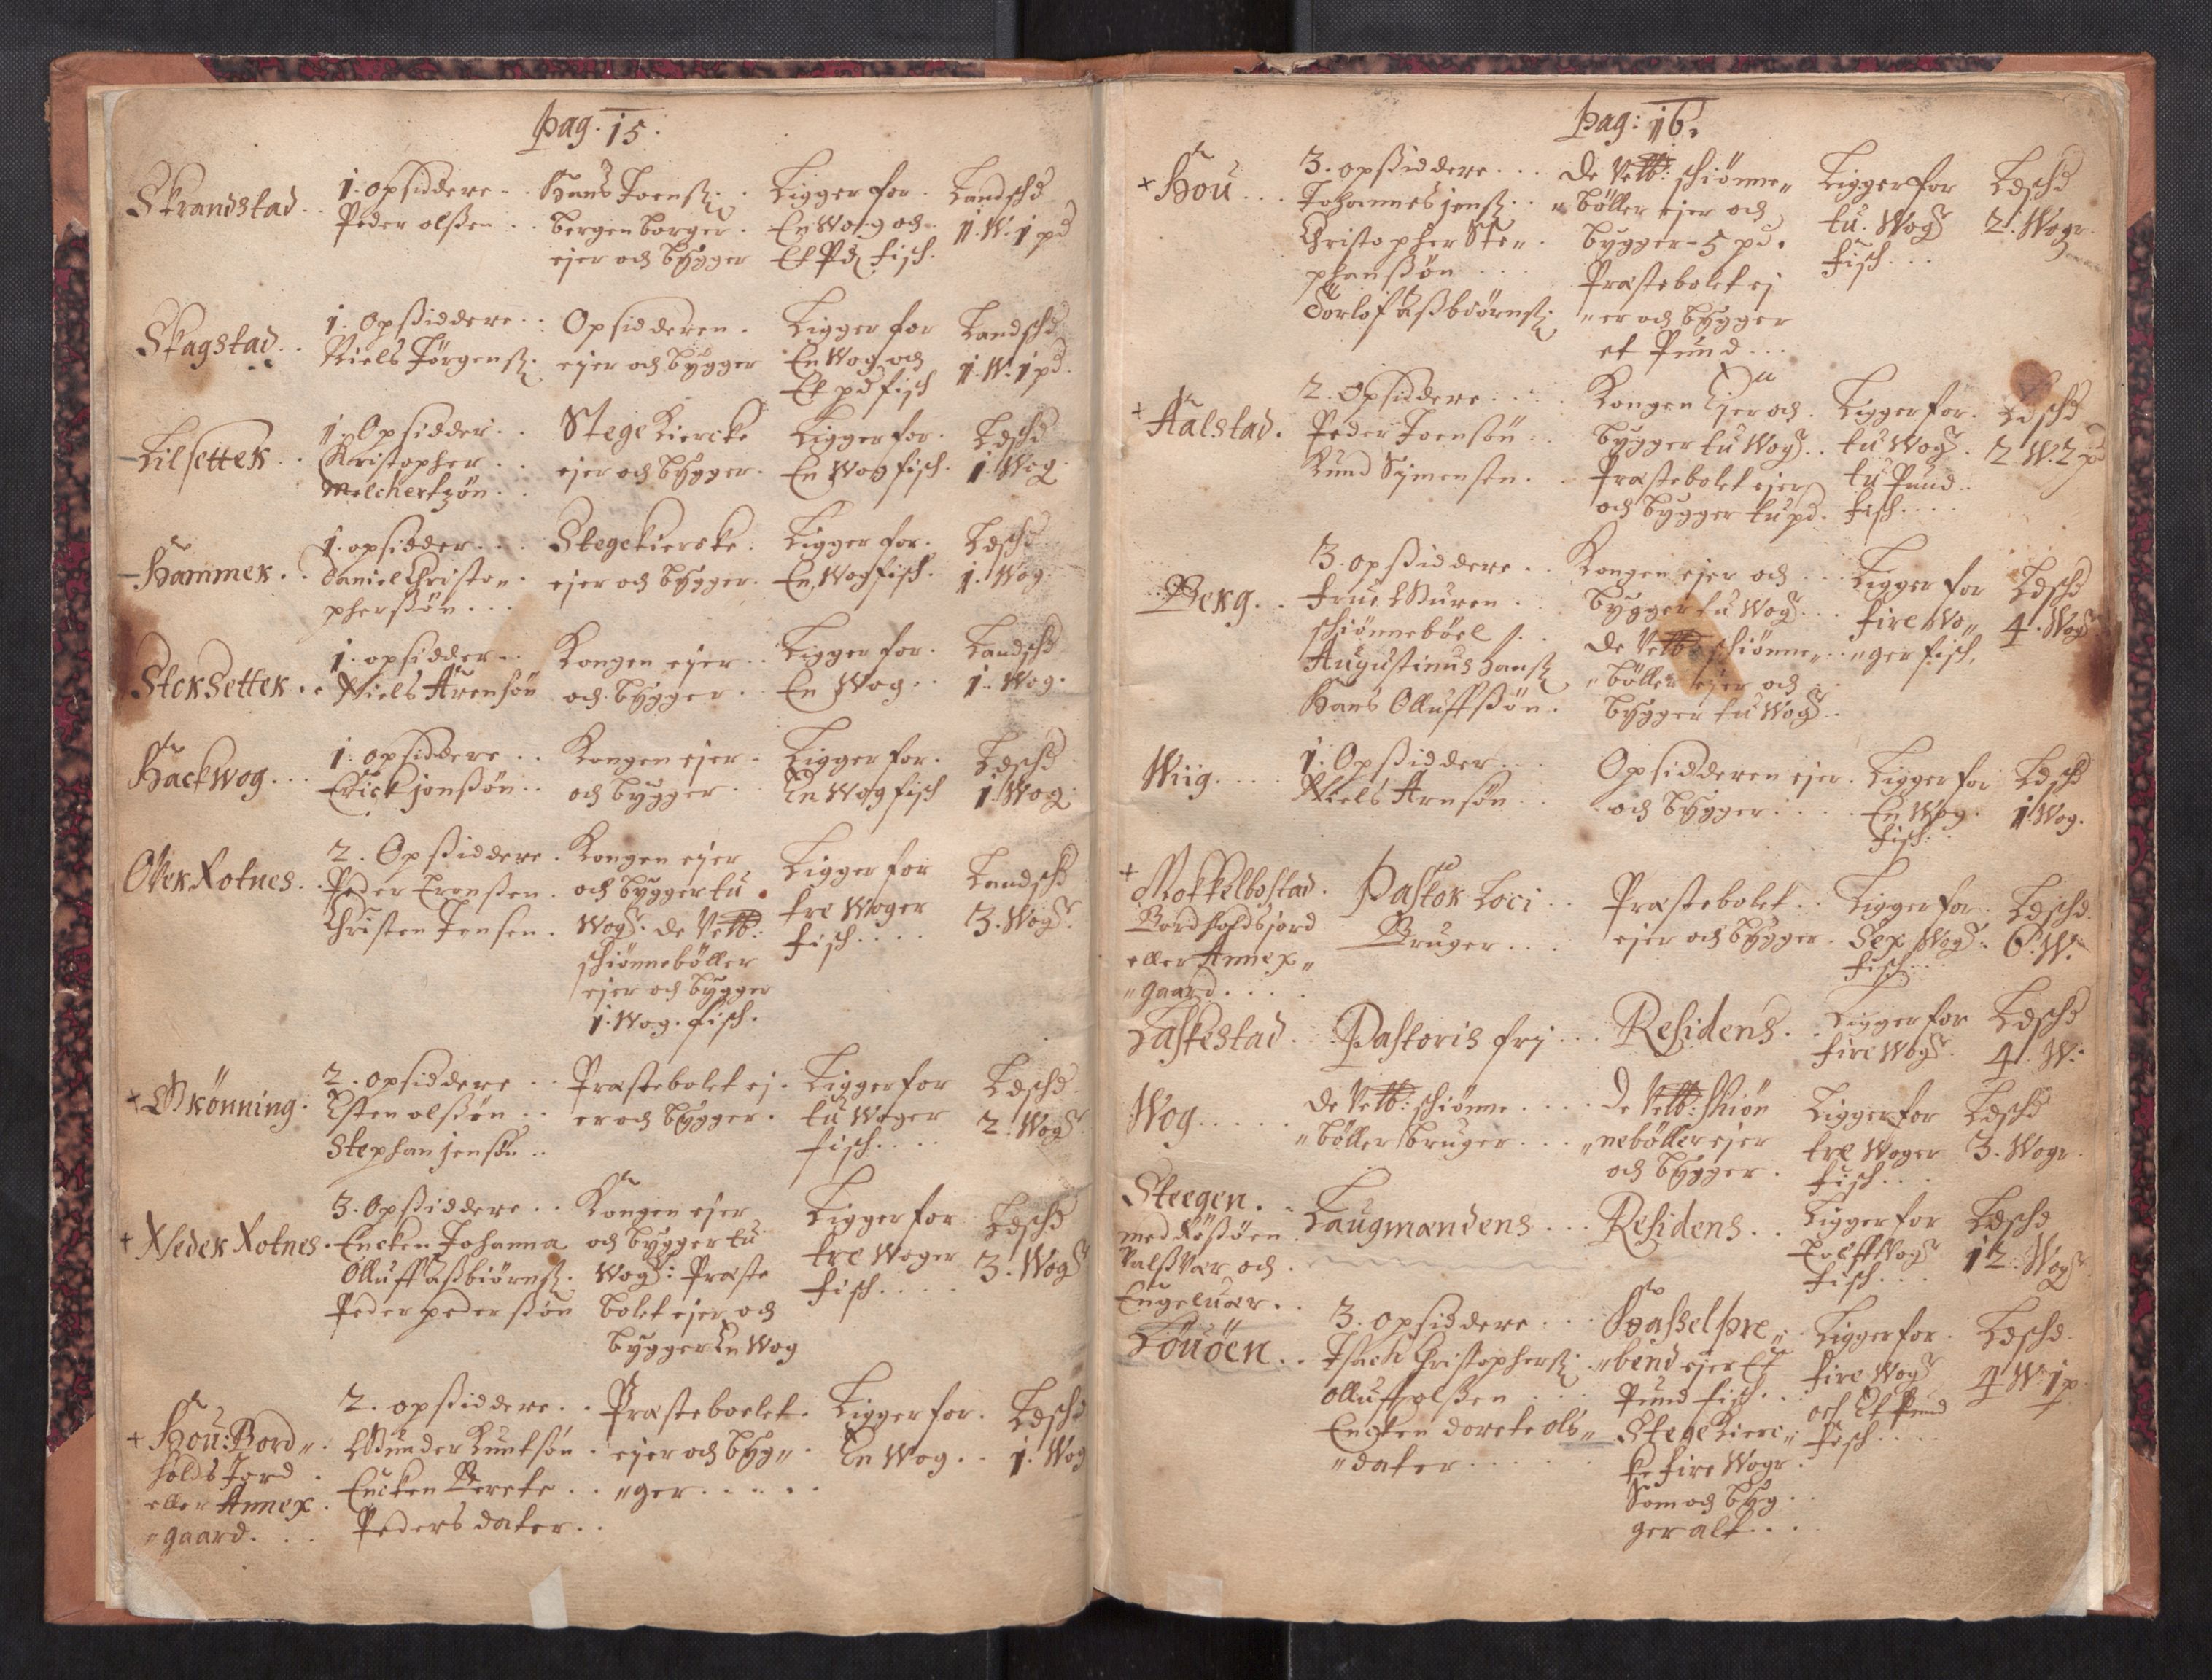 pag. 15.
Strandstad..
1. opsiddere..
Peder olßen..
Hans Joenß..
bergen borger.
ejer och bygger
Ligger for.
En Wog och
Et Pd fisch.
Landschd
1. W. 1 pd
Skagstad..
1. Opßiddere..
Niels Jörgenß.
Opsidderen.
ejer och bygger
Ligger for
En Wog och
Et pd fisch
Landschd
1. W. 1 pd.
Lilsetter..
1. Opsidder..
Christopher..
Melchertzön..
Stege Kiercke
ejer och bygger.
Ligger for.
En Wog fisch.
Ldschd
1. Wog.
Hammer..
1. opsidder...
Daniel Christo„
pherßön...
Stegekiercke.
ejer och bygger.
Ligger for.
En Wog fisch.
Ldschd
1. Wog.
Storsetter..
1. opsidder..
Niels Arensön
Kongen ejer..
och bygger..
Ligger for.
En Wog..
Landschd
1. Wog.
Hackwog...
1. opsiddere..
Erick jonßön..
Kongen ejer.
och bygger..
Ligger for.
En Wog fisch
Ldschd
1. Wog.
Ofver Notnes..
2. Opßiddere.
Peder Eronßen.
Christen Jensen.
Kongen ejer
och bygger tu
Wogr. de Velb:
schiönnebøller
ejer och bygger
1. Wog. fisch.
Ligger for
tre Woger
fisch....
Landschd
3. Wogr.
+ Grönning.
2. opsiddere..
Esten olßön..
Stephan jensön..
Præstebolet ej.
er och bygger.
Ligger for
tu Woger
fisch....
Ldschd
2. Wogr.
+ Neder Notnes.
3. Opßiddere..
Encken Johanna
Olluff Aßbiörnß.
Peder pederßön
Kongen ejer
och bygger tu
Wogr: Præste
bolet ejer och
bygger En Wog
Ligger for
tre Woger
fisch....
Ldschd
3. Wogr
+ Hou: Bord„
holds Jord.
eller Annex.
„gaard...
2. opßiddere..
Gunder Kuntsön.
Encken Berete..
Peders dater..
Præstebolet.
ejer och byg„
„ger.....
Ligger for.
En Wog..
Ldschd
1. Wog
pag: 16.
+ Hou...
3. opßiddere...
Johannes jenß..
Christopher Ste„
phanßön...
Torlof Aßbiörnß.
de Velb: schiönne„
„böller ejer och
bygger 5 pd.
Præstebolet ej
„er och bygger
et Pund...
Ligger for
tu. Wogr
fisch...
Ldschd
2. Wogr.
+ Aalstad.
2. Opsiddere....
Peder Joensön..
Kund Symensen.
Kongen Ejer och.
bygger tu Wogr..
Præstebolet ejer
och bygger tu pd.
Ligger for.
tu Wogr.
tu Pund..
fisch....
Ldschd
2 W. 2 pd
Berg..
3. opßiddere..
frue Maren.
schiönneböel..
Augustinus hanß
Hans Olluffßön.
Kongen ejer och...
bygger tu Wogr...
de Velb schiönne„..
„böller ejer och
bygger tu Wogr..
Ligger for
fire Wo„
„ger fisch.
Ldschd
4. Wogr
Wiig....
1. Opßidder...
Niels Arnsön..
Opsidderen ejer.
och bygger....
Ligger for
En Wog.
fisch..
Ldschd
1. Wog.
+ Mokkelbostad.
Bordholdsjord
eller Annex„
„gaard....
Pastor Loci..
Bruger...
Præstebolet..
ejer och bygger.
Ligger for.
Sex Wogr.
fisch..
Ldschd.
6. W.
Laskestad.
Pastoris fri...
Residens.
Ligger for
fire Wogr.
Ldschd
4. W.
Wog.....
de Velb: schiönne....
„böller bruger...
De Velb: Skiön
„nebøller ejer
och bygger.
Ligger for
tre Woger
fisch...
Ldschd
3. Wogr.
Steegen.
med Rößöen
Valßvær och.
Engeluær..
Laugmandens...
Residens..
Ligger for
Tolff Wogr
fisch...
Ldschd
12. Wogr
Löuöen..
3. opsiddere...
Isach Christopherß.
Olluff olßen...
Encken dorete ols„
„dater.....
Haßel pre„
„bend ejer Et
Pund fisch...
Stege Kierc„
ke fire Wogr.
Som och byg..
ger alt...
Ligger for.
fire Wogr
och Et Pund
fisch....
Ldschd.
4 W. 1 p.